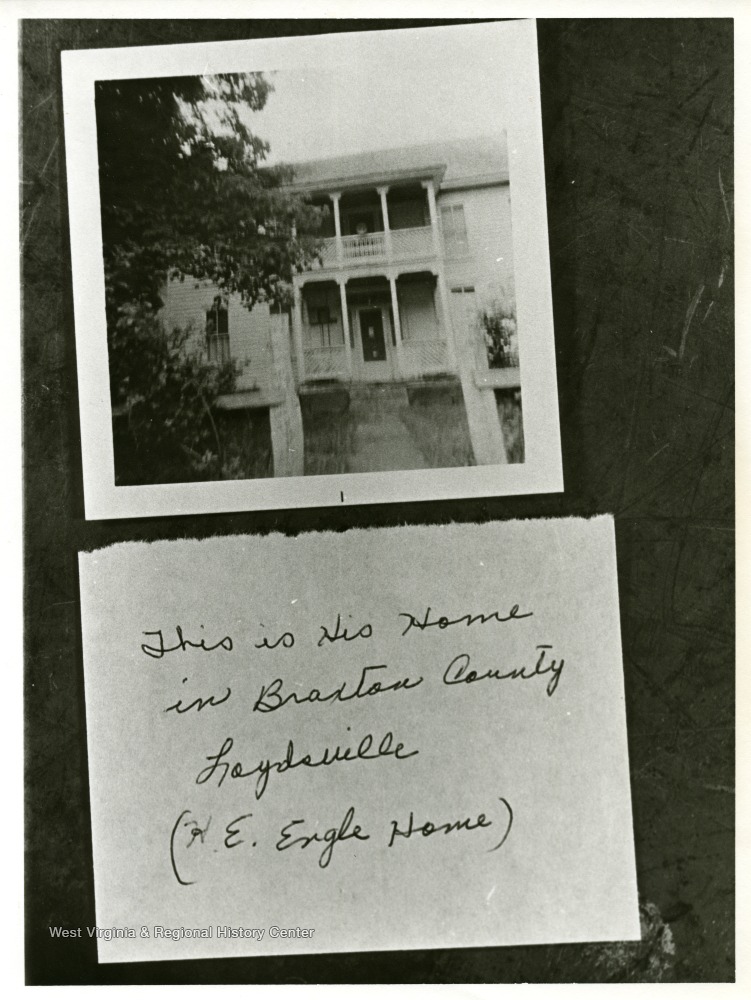 This is His Home
in Braxton County
Loydsville
(H. E. Engle Home)
West Virginia & Regional History Center